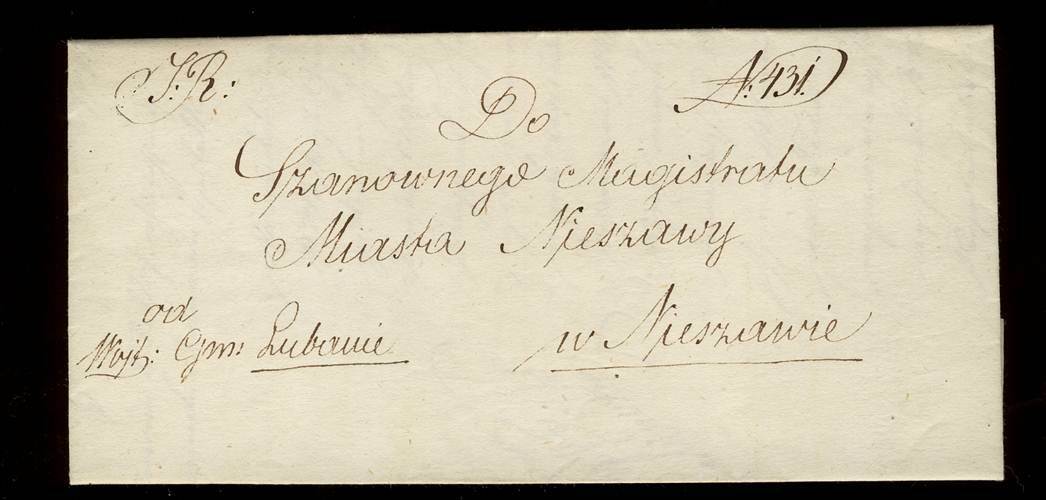 S: R:
N: 431.
Do
Szanownego Magistratu
Miasta Nieszawy
od
Wojt: Gm: Lubanie
w Nieszawie